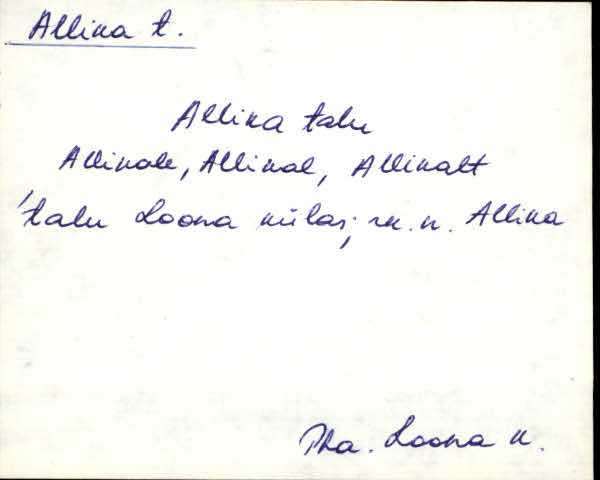 Allika t.
Allika talu
Allikale, Allikal, Allikalt
'talu Loona külas; rk. n. Allika
Pha. Loona k.